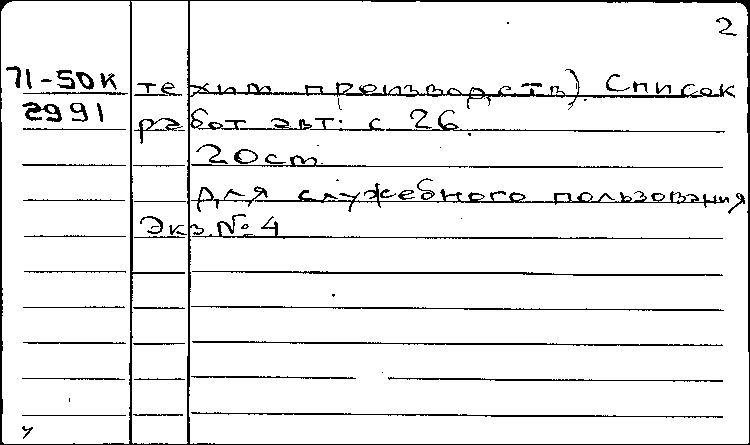 2
71-50К техим производств). Список
2991 работ авт: с 26.
20см
Для служебного пользования
Экз. № 4